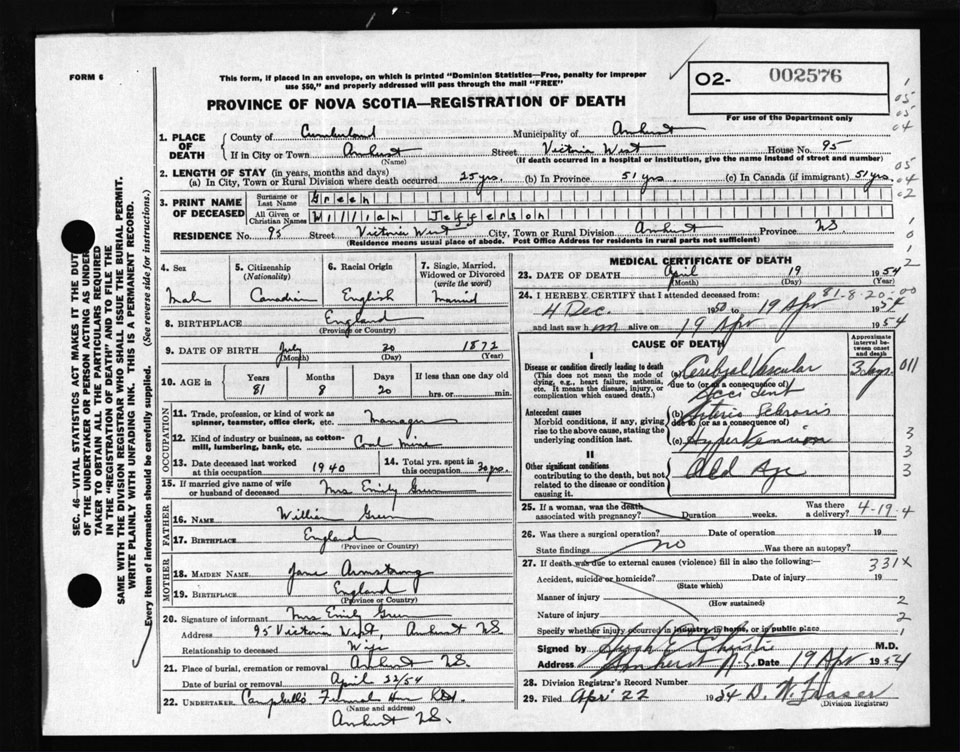 FORM 6
This form, if placed in an envelope, on which is printed "Dominion Statistics—Free, penalty for improper
use $50," and properly addressed will pass through the mail "FREE"
O2- 002576
For use of the Department only
PROVINCE OF NOVA SCOTIA—REGISTRATION OF DEATH
SEC. 46—VITAL STATISTICS ACT MAKES IT THE DUTY
OF THE UNDERTAKER OR PERSON ACTING AS UNDER-
TAKER TO OBTAIN ALL THE PARTICULARS REQUIRED
IN THE "REGISTRATION OF DEATH" AND TO FILE THE
SAME WITH THE DIVISION REGISTRAR WHO SHALL ISSUE THE BURIAL PERMIT.
WRITE PLAINLY WITH UNFADING INK. THIS IS A PERMANENT RECORD.
Every item of information should be carefully supplied. (See reverse side for instructions.)
1. PLACE OF DEATH
County of Cumberland Municipality of Amherst
If in City or Town Amherst Street Victoria West House No. 95
(Name) (If death occurred in a hospital or institution, give the name instead of street and number)
2. LENGTH OF STAY (in years, months and days)
(a) In City, Town or Rural Division where death occurred 25 yrs. (b) In Province 51 yrs. (c) In Canada (if immigrant) 51 yrs.
3. PRINT NAME OF DECEASED
Surname or Last Name Green
All Given or Christian Names William Jefferson
RESIDENCE No. 95 Street Victoria West City, Town or Rural Division Amherst Province NS
(Residence means usual place of abode. Post Office Address for residents in rural parts not sufficient)
4. Sex
Male
5. Citizenship
(Nationality)
Canadian
6. Racial Origin
English
7. Single, Married,
Widowed or Divorced
(write the word)
Married
8. BIRTHPLACE England
(Province or Country)
9. DATE OF BIRTH July 20 1872
(Month) (Day) (Year)
10. AGE in
Years Months Days If less than one day old
81 8 20 hrs. or min.
OCCUPATION
11. Trade, profession, or kind of work as
spinner, teamster, office clerk, etc. Manager
12. Kind of industry or business, as cotton-
mill, lumbering, bank, etc. Coal Mine
13. Date deceased last worked
at this occupation 1940
14. Total yrs. spent in
this occupation 30 yrs.
15. If married give name of wife
or husband of deceased Mrs Emily Green
FATHER
16. NAME William Green
17. BIRTHPLACE England
(Province or Country)
MOTHER
18. MAIDEN NAME Jane Armstrong
19. BIRTHPLACE England
(Province or Country)
20. Signature of informant Mrs Emily Green
Address 95 Victoria West, Amherst NS
Relationship to deceased Wife
21. Place of burial, cremation or removal Amherst NS.
Date of burial or removal April 22/54
22. UNDERTAKER Campbells Funeral Home
(Name and address)
Amherst NS.
MEDICAL CERTIFICATE OF DEATH
23. DATE OF DEATH April 19 1954
(Month) (Day) (Year)
81-8-20-00
24. I HEREBY CERTIFY that I attended deceased from:
4 Dec. 1950 to 19 Apr 1954
and last saw him alive on 19 Apr 1954
CAUSE OF DEATH
Approximate
interval between
onset and death
I
Disease or condition directly leading to death
(This does not mean the mode of
dying, e.g., heart failure, asthenia,
etc. It means the disease, injury, or
complication which caused death.)
(a) Cerebral Vascular 3 days
due to (or as a consequence of)
Accident
Antecedent causes
Morbid conditions, if any, giving
rise to the above cause, stating the
underlying condition last.
(b) Arterio Sclerosis
due to (or as a consequence of)
(c) Hypertension
II
Other significant conditions
contributing to the death, but not
related to the disease or condition
causing it.
Old Age
25. If a woman, was the death
associated with pregnancy? Duration weeks. Was there
a delivery? 4-19-4
26. Was there a surgical operation? Date of operation 19
State findings no Was there an autopsy?
27. If death was due to external causes (violence) fill in also the following: 331X
Accident, suicide or homicide? Date of injury 19
(State which)
Manner of injury
(How sustained)
Nature of injury
Specify whether injury occurred in industry, in home, or in public place
Signed by Hugh E. Christie M.D.
Address Amherst N.S. Date 19 Apr 1954
28. Division Registrar's Record Number
29. Filed Apr 22 1954 D. W. Fraser
(Division Registrar)